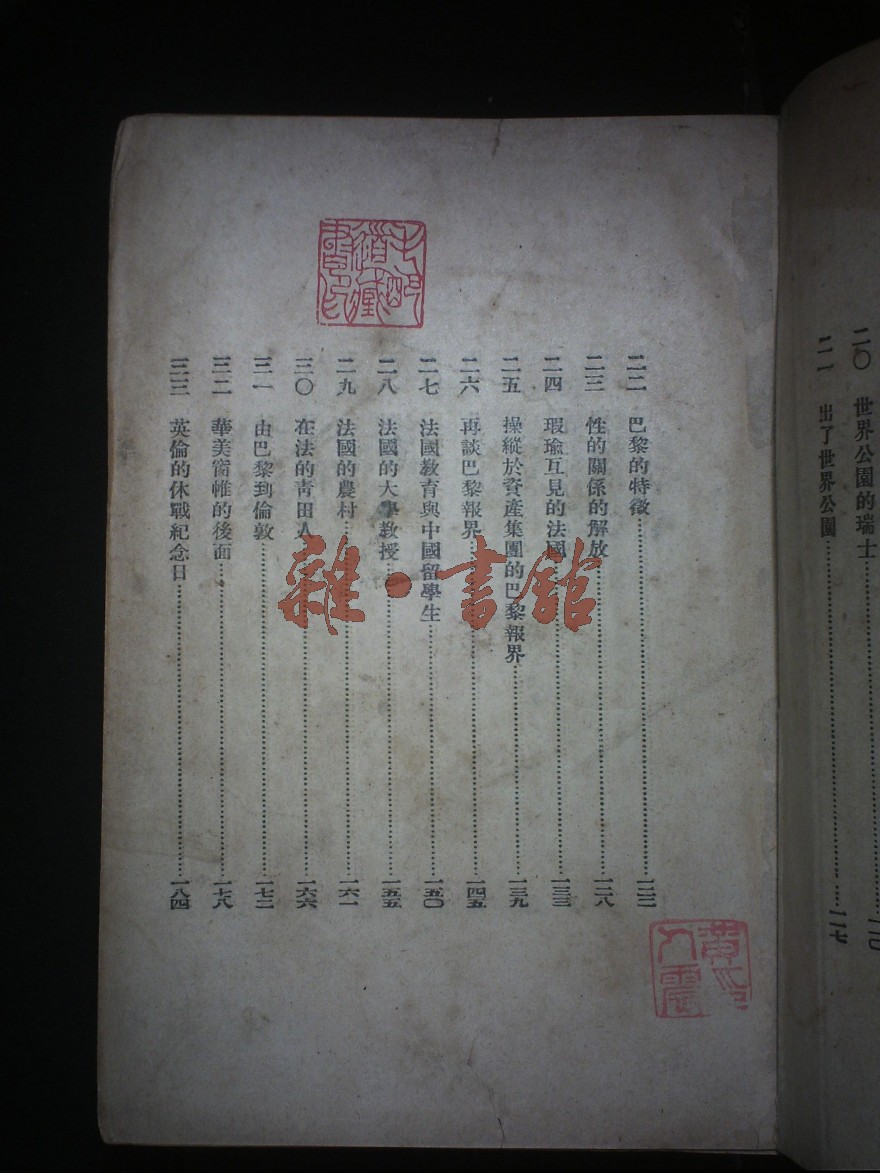 二〇 世界公園的瑞士……一一〇
二一 出了世界公園……一一七
二二 巴黎的特徵……一二二
二三 性的關係的解放……一二八
二四 瑕瑜互見的法國……一三三
二五 操縱於資產集團的巴黎報界……一三九
二六 再談巴黎報界……一四五
二七 法國教育與中國留學生……一五〇
二八 法國的大學教授……一五五
二九 法國的農村……一六一
三〇 在法的青田人……一六六
三一 由巴黎到倫敦……一七二
三二 華美窗帷的後面……一七八
三三 英倫的休戰紀念日……一八四
雜·書館